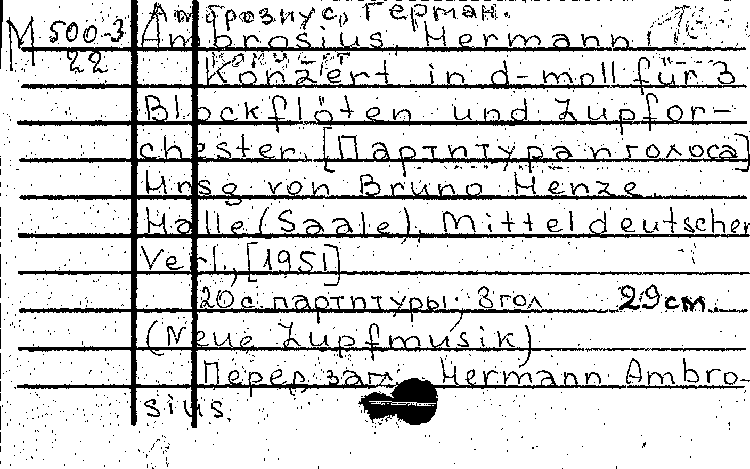 Амброзиус, Герман.
М 500-3 Ambrosius, Hermann
22 Konzert in d-moll für 3
Blockflöten und Zupfor-
chester. [Партитура и голоса]
Hrsg von Bruno Henze.
Halle (Saale), Mitteldeutscher
Verl., [1951]
20 с. партитуры; 3 гол 29 см.
(Neue Zupfmusik)
Перед загл. Hermann Ambro-
sius.